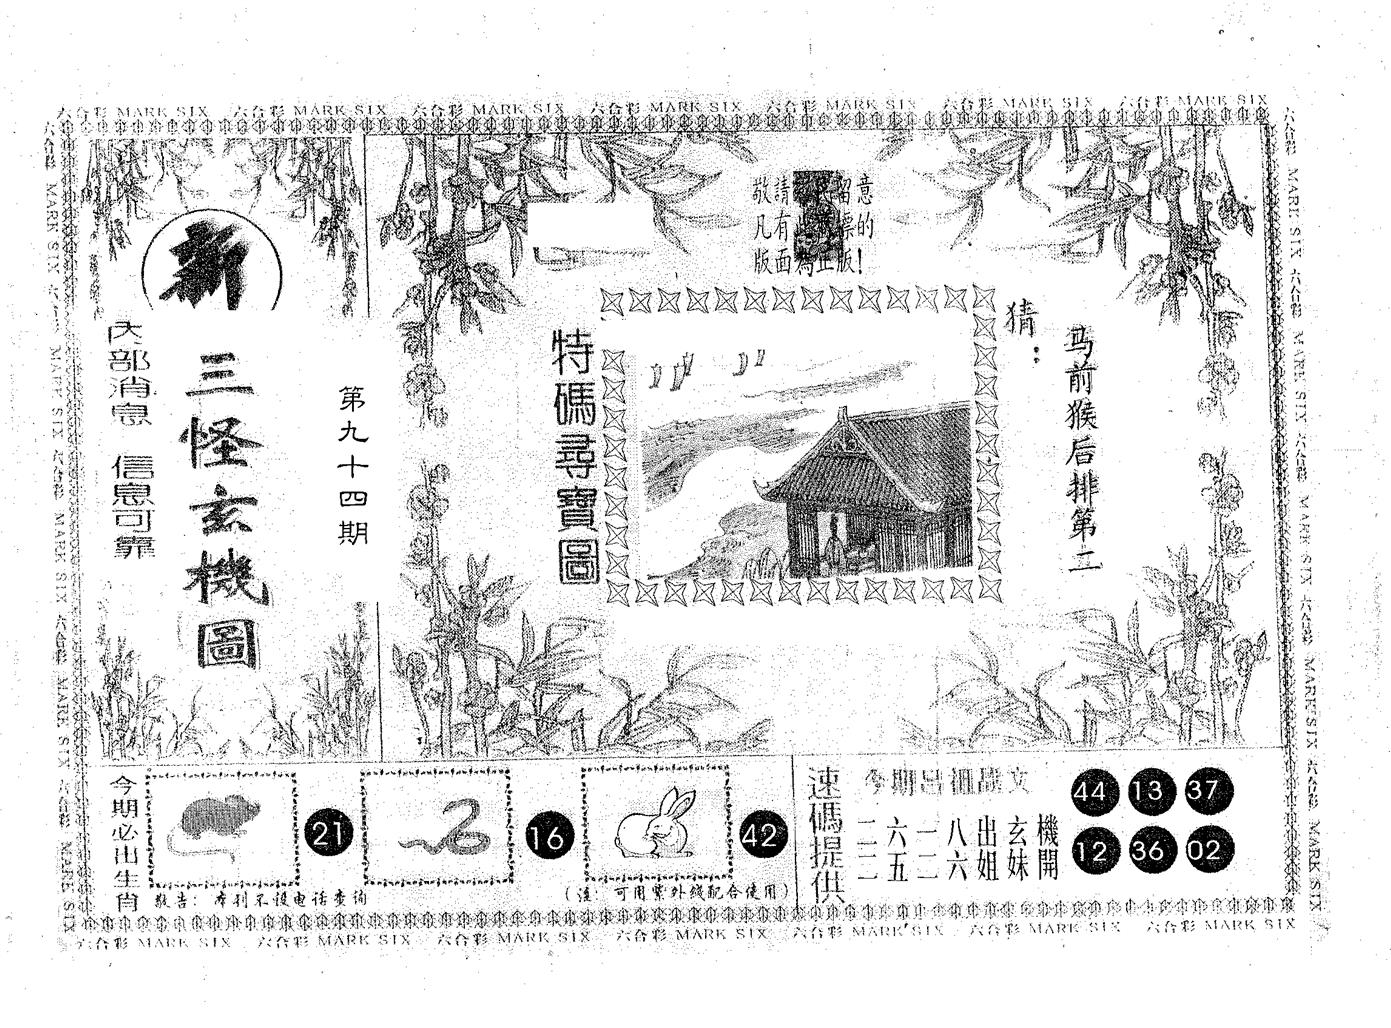 六合彩 MARK SIX 六合彩 MARK SIX 六合彩 MARK SIX 六合彩 MARK SIX 六合彩 MARK SIX 六合彩 MARK SIX 六合彩 MARK SIX
新
內部消息 信息可靠
三怪玄機圖
第九十四期
敬請彩民留意
凡有此商標的
版面為正版!
特碼尋寶圖
猜:
马前猴后排第二
今期必出生肖
21
16
42
敬告: 本刊不设电话查询
(注: 可用紫外线配合使用)
速碼提供
今期出
二六一八出玄機
二五二六姐妹開
44 13 37
12 36 02
六合彩 MARK SIX 六合彩 MARK SIX 六合彩 MARK SIX 六合彩 MARK SIX 六合彩 MARK SIX 六合彩 MARK SIX 六合彩 MARK SIX